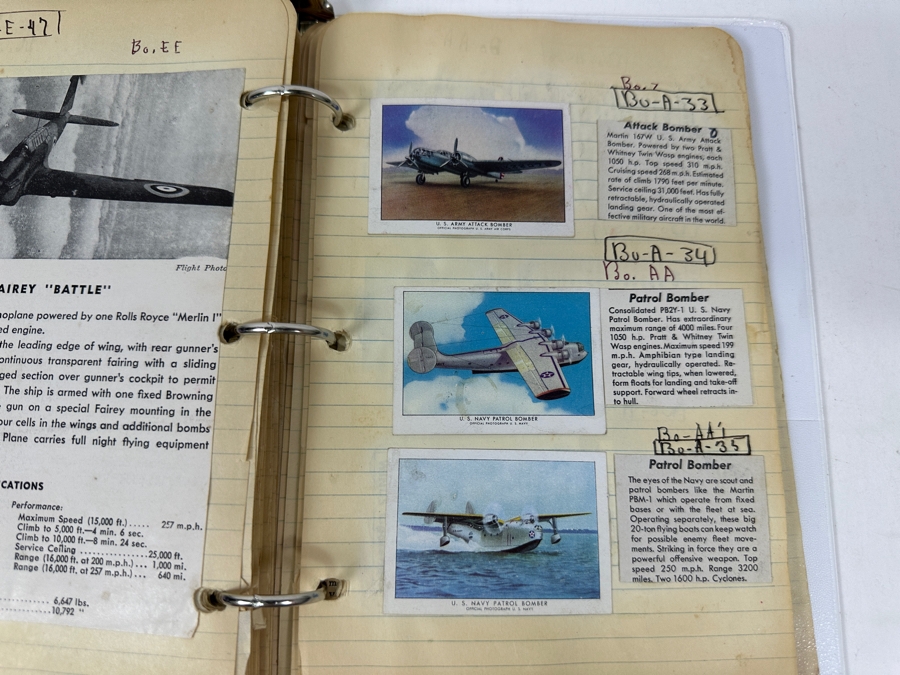 E-47
Bo. EE
Flight Photo
AIREY "BATTLE"
noplane powered by one Rolls Royce "Merlin I"
ed engine.
the leading edge of wing, with rear gunner's
ontinuous transparent fairing with a sliding
ged section over gunner's cockpit to permit
The ship is armed with one fixed Browning
gun on a special Fairey mounting in the
our cells in the wings and additional bombs
Plane carries full night flying equipment
CATIONS
Performance:
Maximum Speed (15,000 ft.)..... 257 m.p.h.
Climb to 5,000 ft.—4 min. 6 sec.
Climb to 10,000 ft.—8 min. 24 sec.
Service Ceiling ................25,000 ft.
Range (16,000 ft. at 200 m.p.h.)... 1,000 mi.
Range (16,000 ft. at 257 m.p.h.)... 640 mi.
.......... 6,647 lbs.
..........10,792 "
Bo-A-33
Attack Bomber
Martin 167W U. S. Army Attack
Bomber. Powered by two Pratt &
Whitney Twin Wasp engines, each
1050 hp. Top speed 310 m.p.h.
Cruising speed 268 m.p.h. Estimated
rate of climb 1790 feet per minute.
Service ceiling 31,000 feet. Has fully
retractable, hydraulically operated
landing gear. One of the most ef-
fective military aircraft in the world.
U. S. ARMY ATTACK BOMBER
OFFICIAL PHOTOGRAPH U. S. ARMY AIR CORPS
Bo-A-34
Bo. AA
Patrol Bomber
Consolidated PB2Y-1 U. S. Navy
Patrol Bomber. Has extraordinary
maximum range of 4000 miles. Four
1050 h.p. Pratt & Whitney Twin
Wasp engines. Maximum speed 199
m.p.h. Amphibian type landing
gear, hydraulically operated. Re-
tractable wing tips, when lowered,
form floats for landing and take-off
support. Forward wheel retracts in-
to hull.
U. S. NAVY PATROL BOMBER
OFFICIAL PHOTOGRAPH U. S. NAVY
Bo-AA'1
Bo-A-35
Patrol Bomber
The eyes of the Navy are scout and
patrol bombers like the Martin
PBM-1 which operate from fixed
bases or with the fleet at sea.
Operating separately, these big
20-ton flying boats can keep watch
for possible enemy fleet move-
ments. Striking in force they are a
powerful offensive weapon. Top
speed 250 m.p.h. Range 3200
miles. Two 1600 h.p. Cyclones.
U. S. NAVY PATROL BOMBER
OFFICIAL PHOTOGRAPH U. S. NAVY